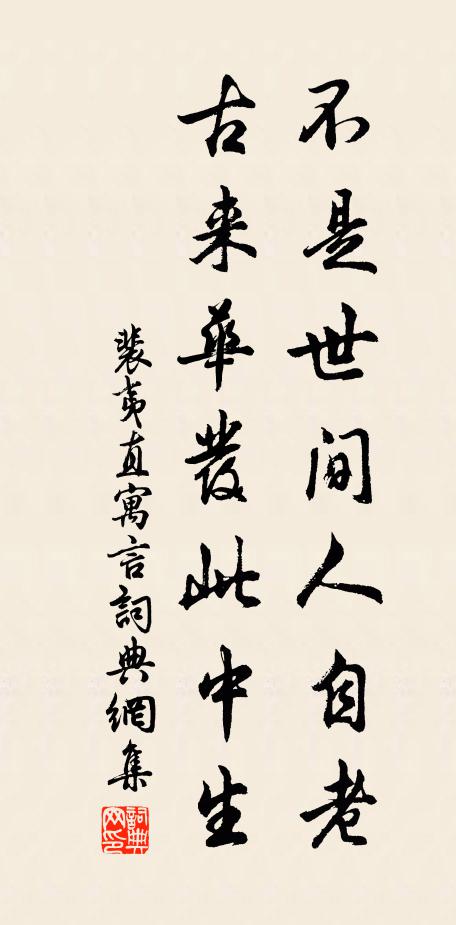 不是世间人自老
古来華发此中生
裴夷直寓言詞典網集
詞典网印